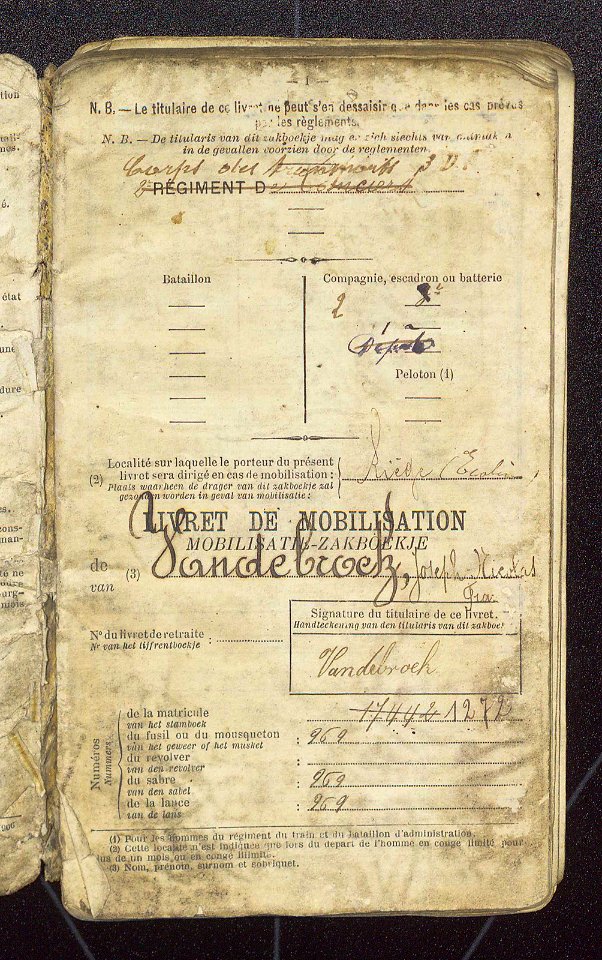 — 1 —
N. B. — Le titulaire de ce livret ne peut s'en dessaisir que dans les cas prévus
par les règlements.
N. B. — De titularis van dit zakboekje mag er zich slechts van ontmaken
in de gevallen voorzien door de reglementen.
Corps des 3 D.
RÉGIMENT D
Bataillon
Compagnie, escadron ou batterie
2
Peloton (1)
Localité sur laquelle le porteur du présent
(2) livret sera dirigé en cas de mobilisation :
Plaats waarheen de drager van dit zakboekje zal
gezonden worden in geval van mobilisatie :
Liége
LIVRET DE MOBILISATION
MOBILISATIE-ZAKBOEKJE
de
van
(3) Vandebroek, Joseph Nicolas
Signature du titulaire de ce livret.
Handteekening van den titularis van dit zakboek
N° du livret de retraite :
Nr van het lijfrentboekje
Vandebroek
Numéros
Nummers
de la matricule
van het stamboek
17442 1272
du fusil ou du mousqueton
van het geweer of het musket
: 269
du revolver
van den revolver
:
du sabre
van den sabel
: 269
de la lance
van de lans
: 269
(1) Pour les hommes du régiment du train et du bataillon d'administration.
(2) Cette localité n'est indiquée que lors du départ de l'homme en congé limité pour
plus de un mois ou en congé illimité.
(3) Nom, prénom, surnom et sobriquet.
état
dure